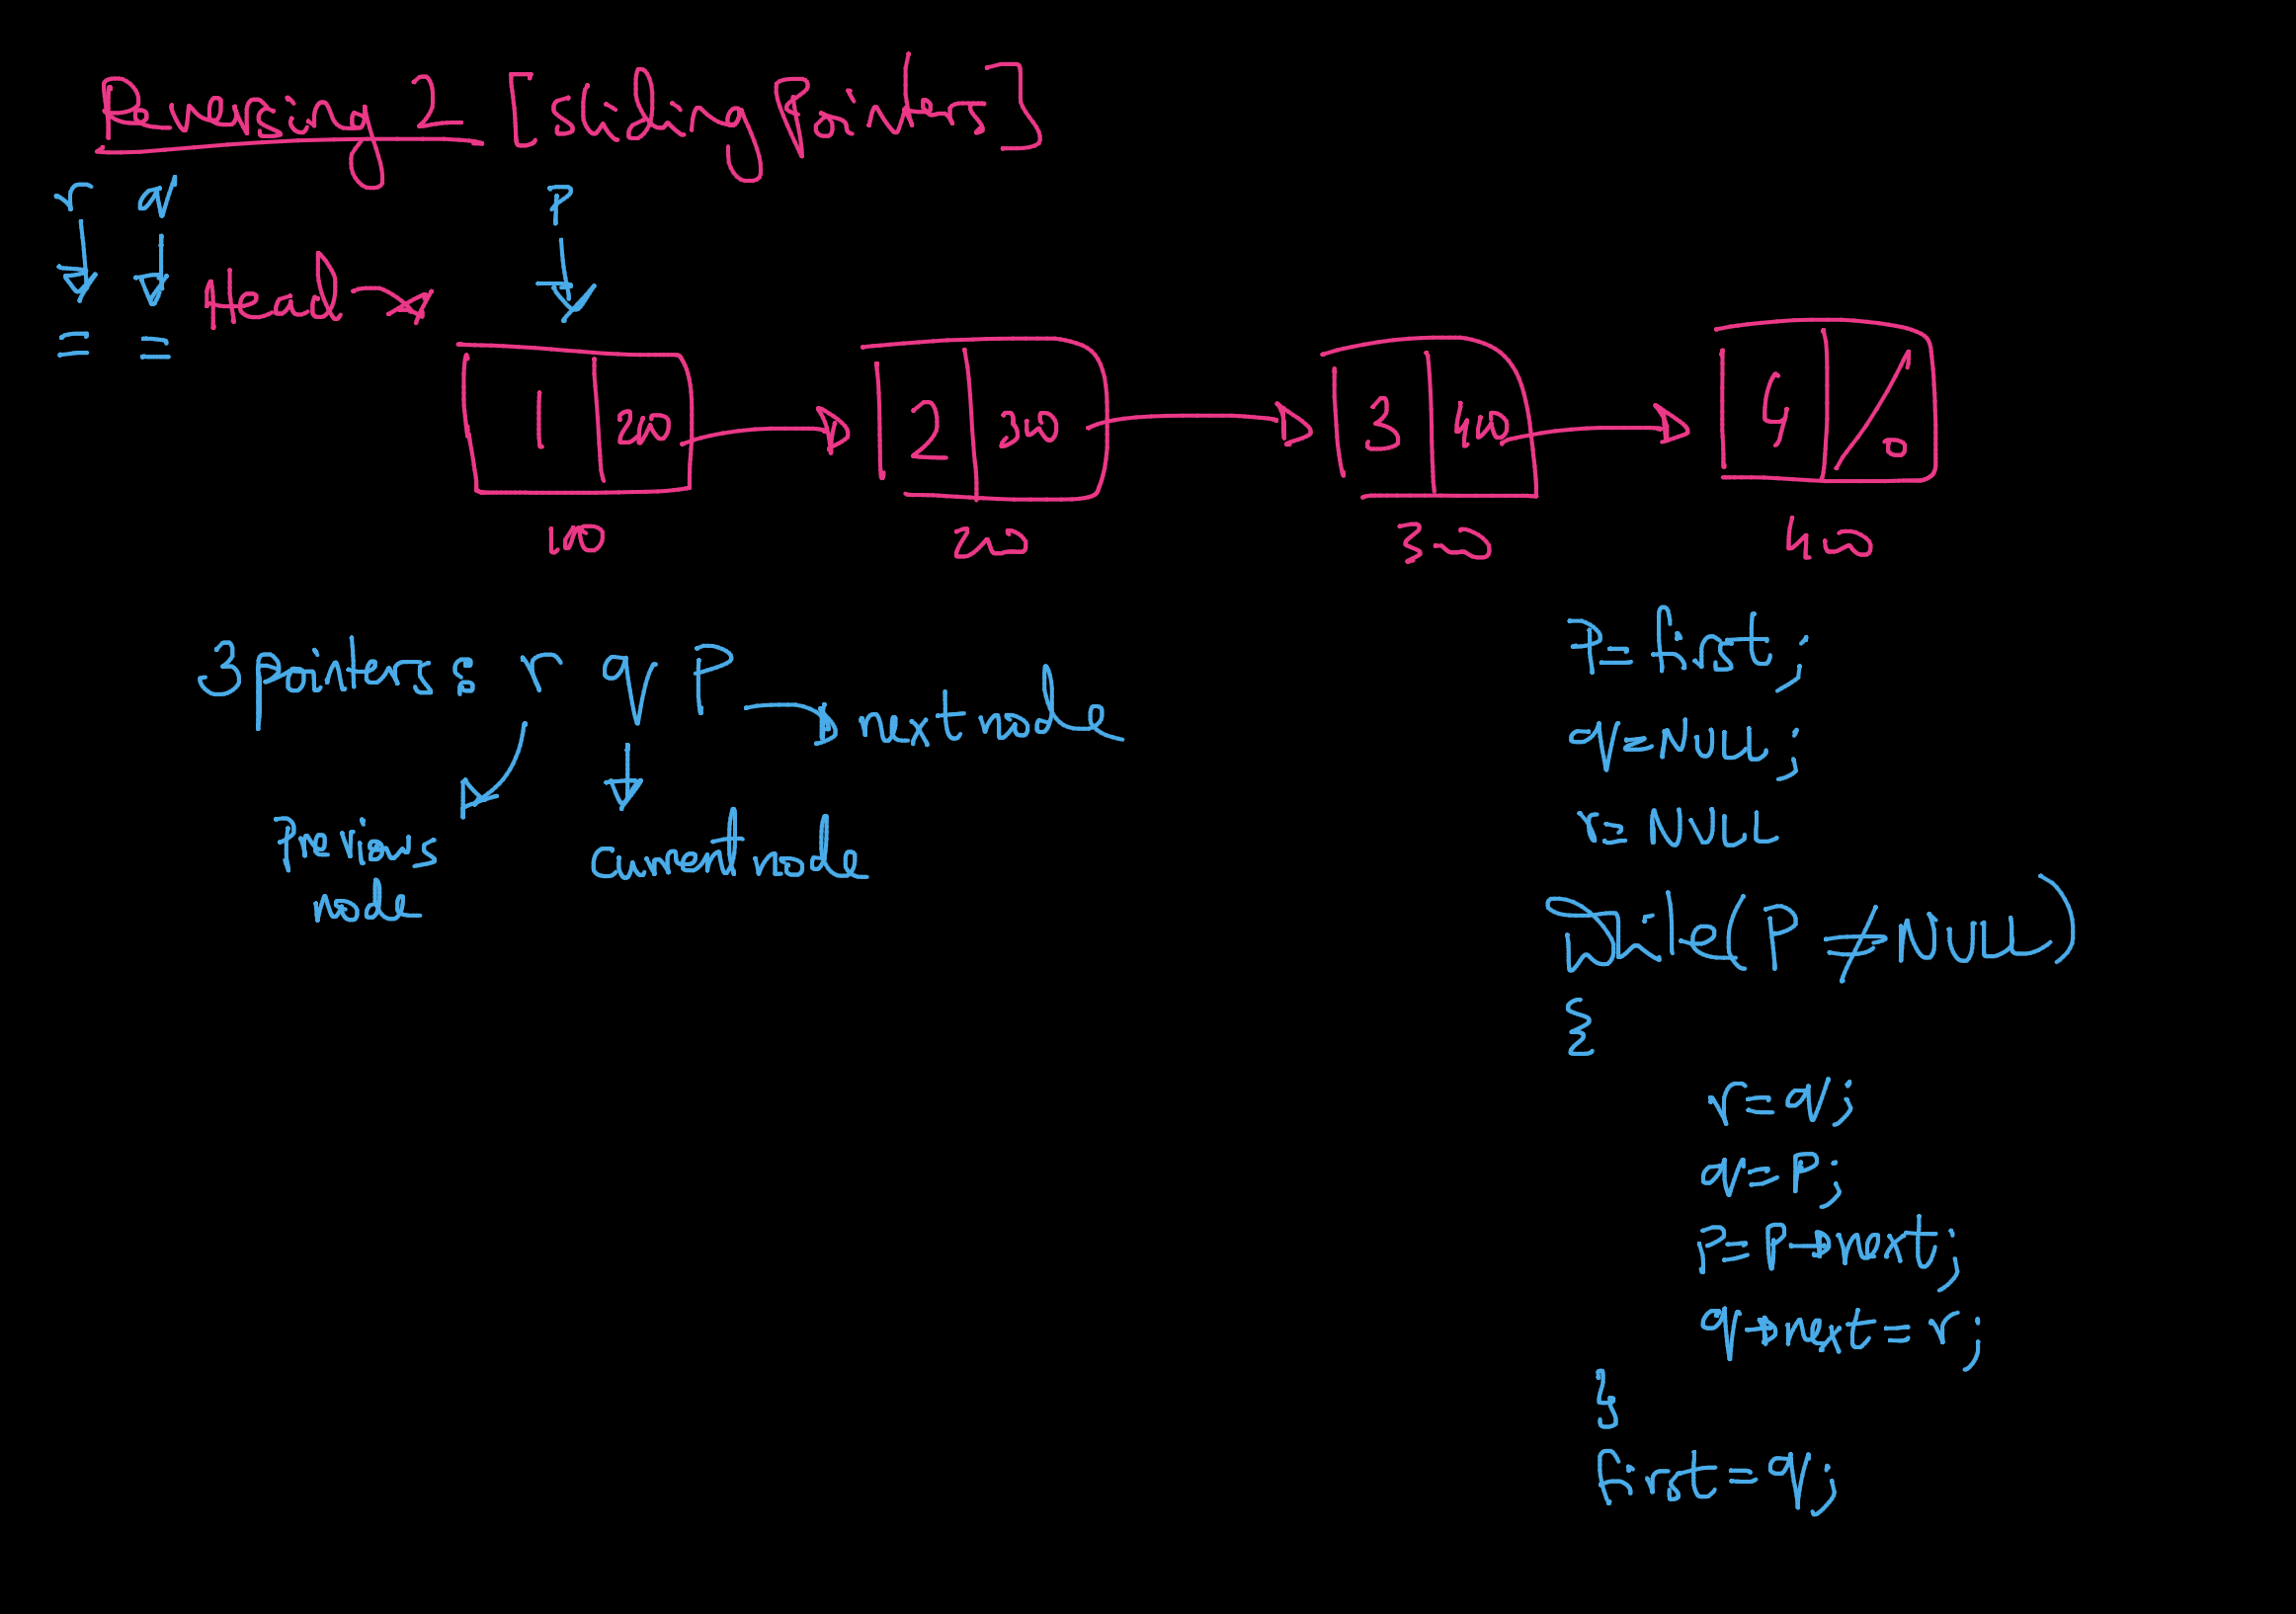 Reversing 2 [Sliding Pointers]
r q P
Head
1 200 2 300 3 400 4 0
100 200 300 400
3 pointers : r q P → next node
Previous current node
node
P = first ;
q = NULL ;
r = NULL
While (P ≠ NULL)
{
r = q ;
q = P ;
P = P → next ;
q → next = r ;
}
first = q ;